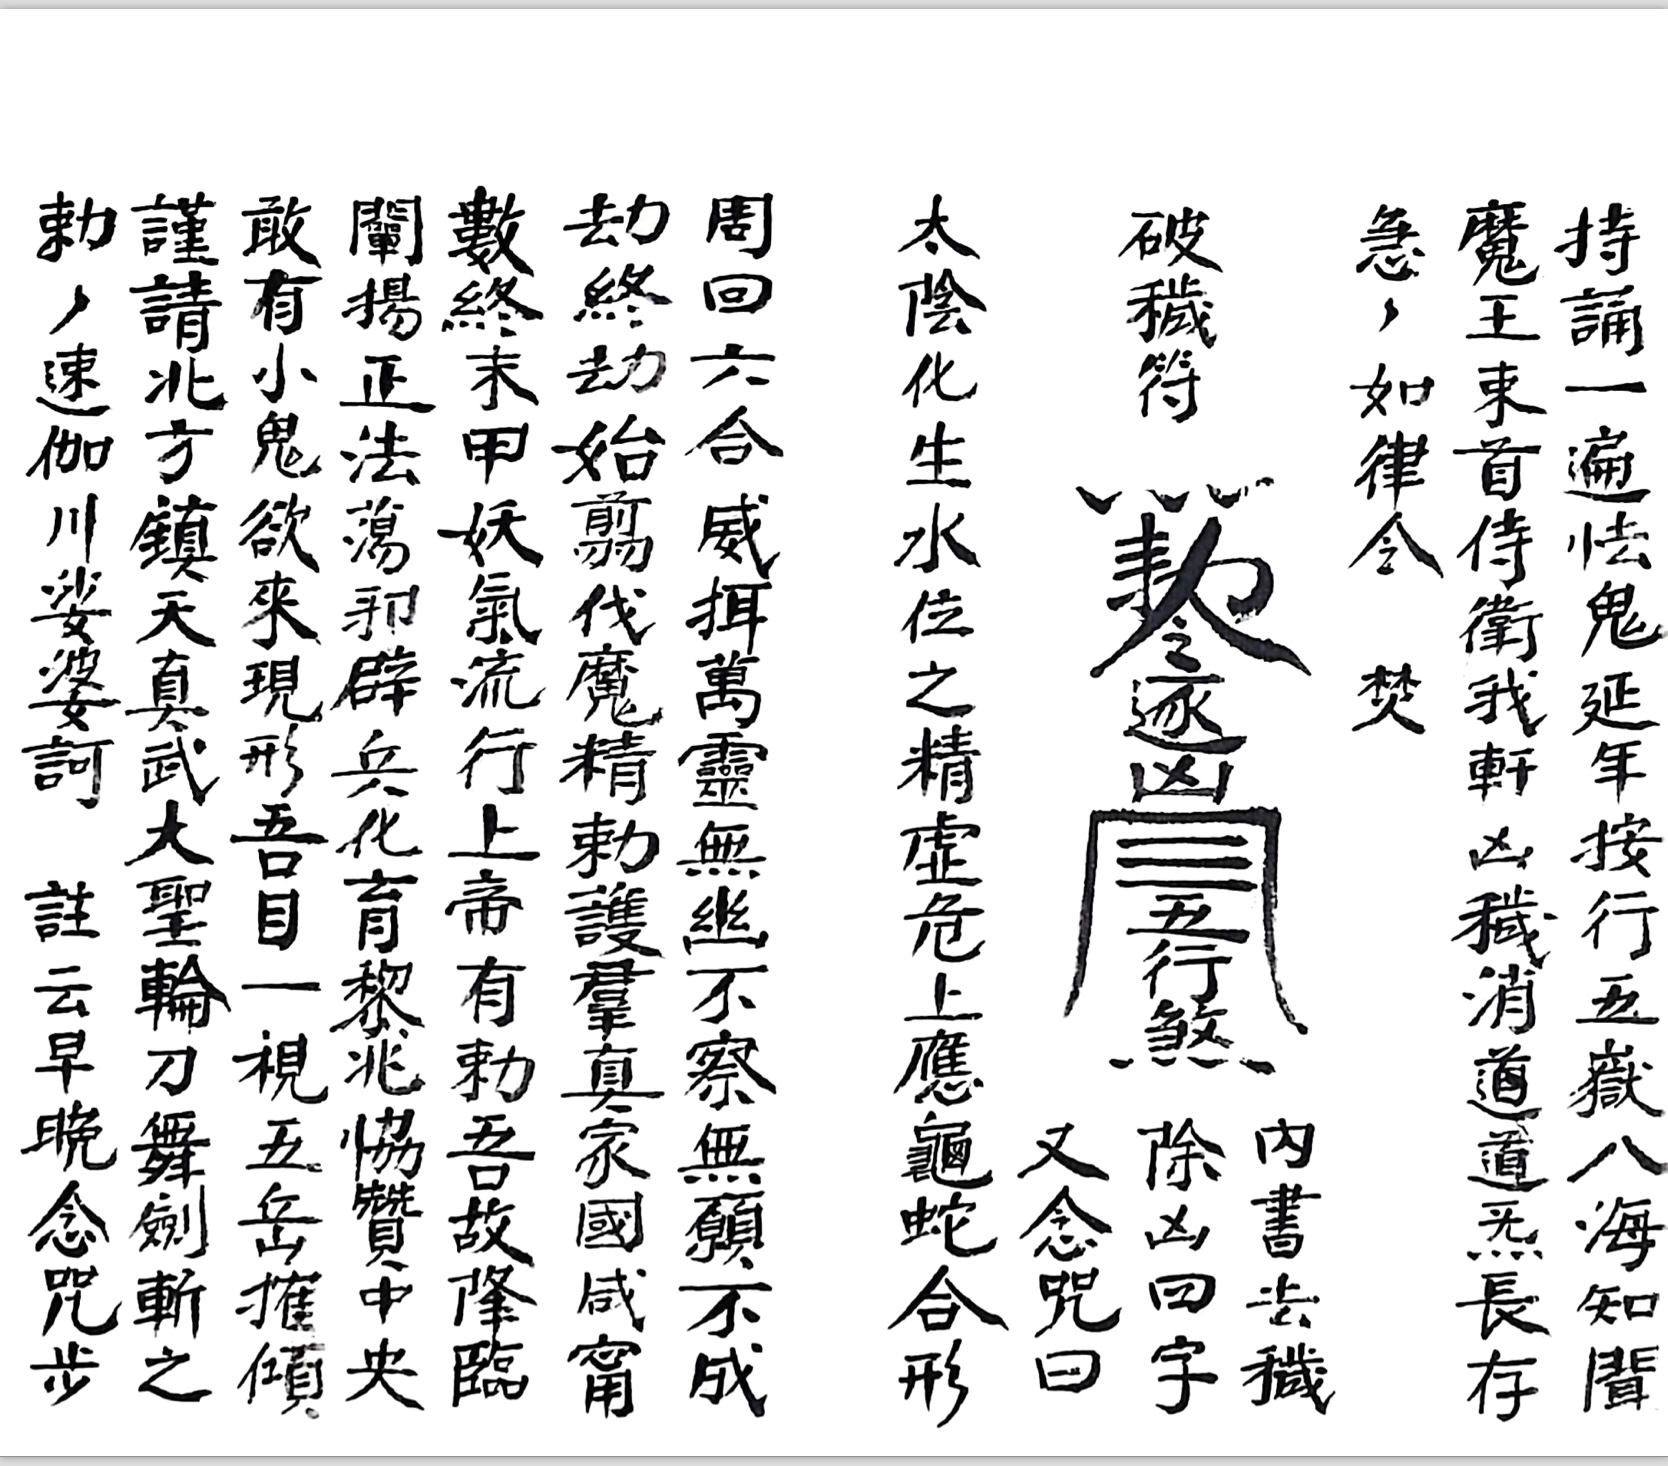 持誦一遍怯鬼延年按行五嶽八海知聞
魔王束首侍衛我軒凶穢消道道炁長存
急〻如律令　焚
破穢符
敕令逐凶
三五行煞
內書去穢
除凶四字
又念咒曰
太陰化生水位之精虛危上應龜蛇合形
周回六合威揖萬靈無幽不察無願不成
劫終劫始翦伐魔精勅護羣真家國咸甯
數終末甲妖氣流行上帝有勅吾故降臨
闡揚正法蕩邪辟兵化育黎兆恊贊中央
敢有小鬼欲來現形吾目一視五岳摧傾
謹請北方鎮天真武大聖輪刀舞劍斬之
勅〻速伽川娑婆訶　註云早晚念咒步